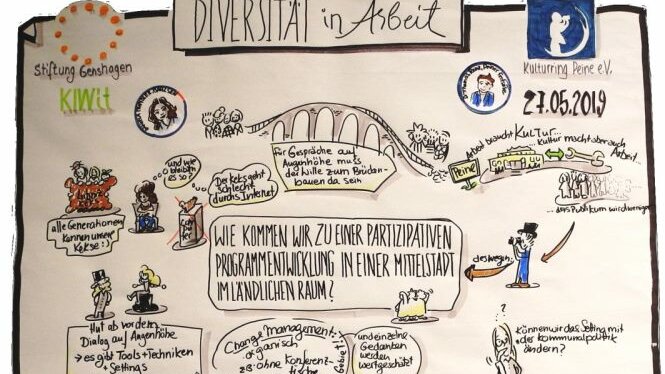 DIVERSITÄT in Arbeit
Stiftung Genshagen
KIWit
Kulturring Peine e.V.
27.05.2019
für Gespräche auf
Augenhöhe muss
der Wille zum Brücken-
bauen da sein
Peine
Arbeit braucht KULTUR...
Kultur macht aber auch
Arbeit...
...das Publikum wird weniger
und wie
bleiben
es so?
Der Keks geht
schlecht
durchs Internet
alle Generationen
kennen unsere
Kekse :)
WIE KOMMEN WIR ZU EINER PARTIZIPATIVEN
PROGRAMMENTWICKLUNG IN EINER MITTELSTADT
IM LÄNDLICHEN RAUM?
deswegen
Hut ab vor dem
Dialog auf Augenhöhe
→ es gibt Tools + Techniken
+ Settings
Change Management:
organisch
z.B. ohne Konferenz-
tische
und einzelne
Gedanken
werden
wertgeschätzt
?
Können wir das Setting mit
der Kommunalpolitik
ändern?